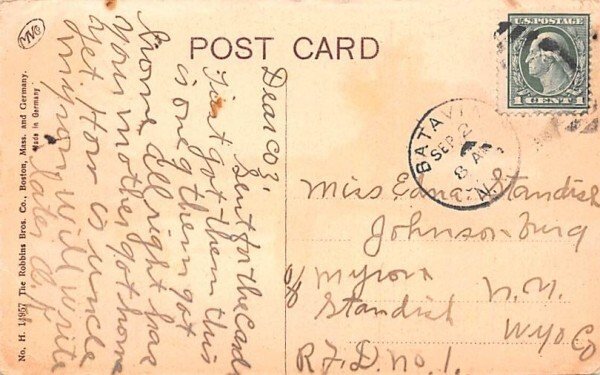 CMC
POST CARD
U.S. POSTAGE
1 CENT 1
BATAVIA
SEP 2
8 A
N.Y.
Dear coz,
Sent for the cards
first got them this
is one of them got
home all right has
your mother got home
yet. How is uncle
myron, will write
later
Miss Edna Standish
Johnsonburg
c/o Myron N.Y.
Standish Wyo Co
R.F.D. No. 1.
No. H. 14957 The Robbins Bros. Co., Boston, Mass. and Germany.
Made in Germany